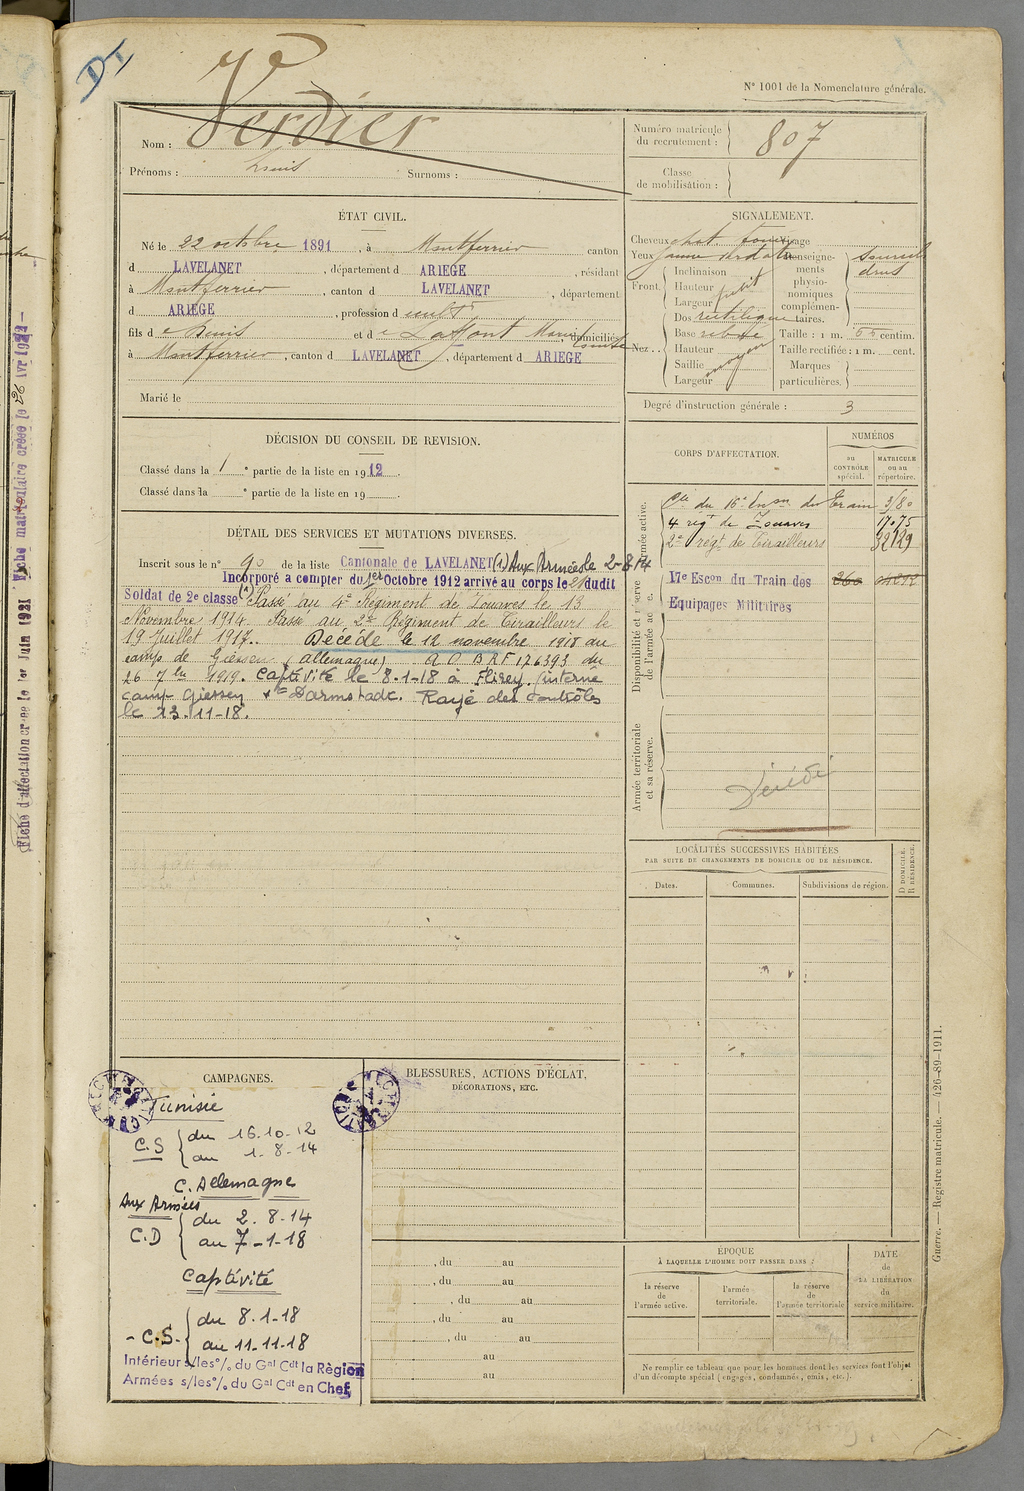 DI
N° 1001 de la Nomenclature générale.
Nom : Verdier
Prénoms : Louis Surnoms :
Numéro matricule du recrutement : 807
Classe de mobilisation :
ÉTAT CIVIL.
Né le 22 octobre 1891, à Montferrier canton
d LAVELANET, département d ARIEGE, résidant
à Montferrier, canton d LAVELANET, département
d ARIEGE, profession d cult
fils de Denis et de Laffont Marie domiciliés
à Montferrier, canton d LAVELANET, département d ARIEGE
Marié le
SIGNALEMENT.
Cheveux chat. foncé Visage
Yeux jaune verdâtre Renseignements physionomiques complémentaires. sourcils drus
Front. Inclinaison
Hauteur petit
Largeur
Nez. Dos rectiligne
Base
Hauteur moyen
Saillie
Largeur
Taille : 1 m. 65 centim.
Taille rectifiée : 1 m. cent.
Marques particulières.
Degré d'instruction générale : 3
DÉCISION DU CONSEIL DE REVISION.
Classé dans la 1e partie de la liste en 1912.
Classé dans la e partie de la liste en 19
DÉTAIL DES SERVICES ET MUTATIONS DIVERSES.
Inscrit sous le n° 90 de la liste Cantonale de LAVELANET (1) Aux Armées le 2-8-14
Incorporé a compter du 1er Octobre 1912 arrivé au corps le dudit
Soldat de 2e classe (1) Passé au 4e Régiment de Zouaves le 13
Novembre 1914. Passé au 2e Régiment de Tirailleurs le
19 Juillet 1917. Décédé le 12 novembre 1918 au
camp de Giessen (allemagne) AO BRF 126393 du
26 7bre 1919. Captivité le 8-1-18 à Flirey. Interné
camp Giessen Darmstadt. Rayé des contrôles
le 13-11-18.
CORPS D'AFFECTATION.
NUMÉROS
au CONTRÔLE spécial.
MATRICULE ou au répertoire.
Armée active.
Cie du 16e Escon du Train 3180
4 régt de Zouaves 17075
2e régt de Tirailleurs 32129
Disponibilité et réserve de l'armée active.
17e Escon du Train des
Equipages Militaires
Armée territoriale et sa réserve.
Décédé
LOCALITÉS SUCCESSIVES HABITÉES
PAR SUITE DE CHANGEMENTS DE DOMICILE OU DE RÉSIDENCE.
Dates. Communes. Subdivisions de région.
D DOMICILE. R RÉSIDENCE.
CAMPAGNES.
Tunisie
C.S du 16.10-12
au 1-8-14
C. Allemagne
Aux Armées
C.D du 2.8.14
au 7-1-18
Captivité
C.S. du 8.1-18
au 11-11-18
Intérieur s/les% du Gal Cdt la Région
Armées s/les% du Gal Cdt en Chef
BLESSURES, ACTIONS D'ÉCLAT,
DÉCORATIONS, ETC.
, du au
, du au
, du au
, du au
, du au
au
au
ÉPOQUE
À LAQUELLE L'HOMME DOIT PASSER DANS :
la réserve de l'armée active.
l'armée territoriale.
la réserve de l'armée territoriale
DATE de LA LIBÉRATION du service militaire.
Ne remplir ce tableau que pour les hommes dont les services font l'objet
d'un décompte spécial (engagés, condamnés, omis, etc.).
Guerre. — Registre matricule. — 426-89-1911.
Fiche d'affectation créée le 1er Juin 1921 Fiche matriculaire créée le 26 Avr 1922